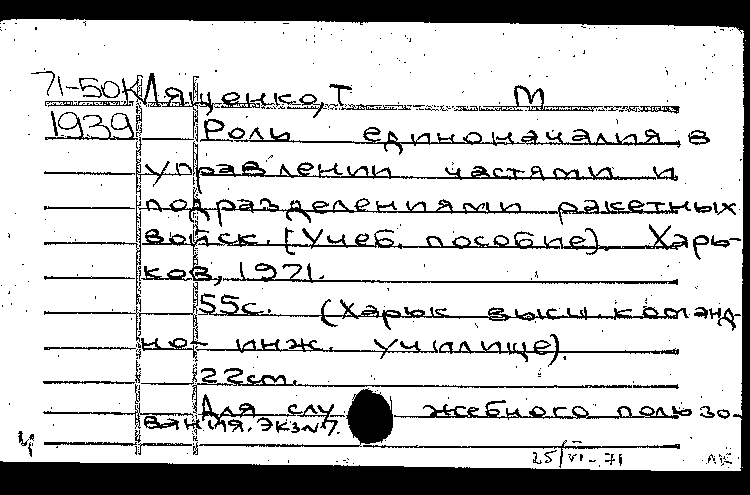 71-50К Лященко, Т М
1939 Роль единоначалия в
управлении частями и
подразделениями ракетных
войск. [Учеб. пособие]. Харь-
ков, 1971.
55с. (Харьк высш. команд-
но- инж. училище).
22см.
Для служебного пользо-
вания. Экз№7.
4 25/VI-71 АК